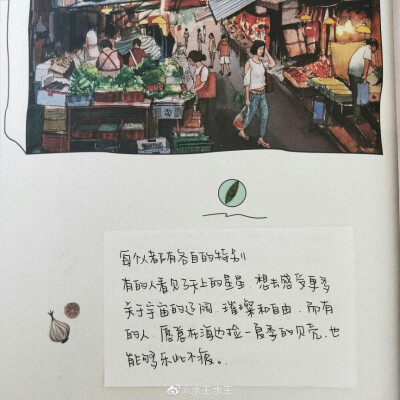 每个人都有各自的特别
有的人看见了天上的星星，想去感受更多
关于宇宙的辽阔，璀璨和自由，而有
的人，愿意在海边捡一夏季的贝壳，也
能够乐此不疲。
@水王水王